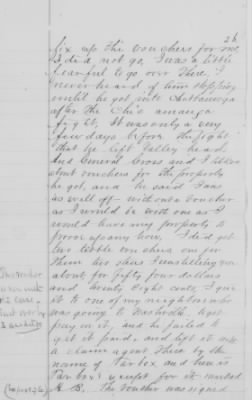 26
fix up the vouchers for me,
I did not go, I was a little
fearful to go over there. I
never heard of him stopping
until he got into Chattanooga
after the Chicamauga
fight, It was only a very
few days before the fight
that he left Valley head.
And General Cross and I talked
about vouchers for the property
he got, and he said I was
as well off without a voucher
as I would be with one as I
would have my property to
prove up any how, I had got
two little vouchers one of
them was I was telling you
about for fifty four dollars
and twenty Eight cents, I give
it to one of my neighbors who
was going to Nashville to get
pay on it, and he failed to
get it paid, and left it with
a claim agent there by the
name of Tarbox and here is
Tarbox's receipt for it marked
A B. The voucher was signed